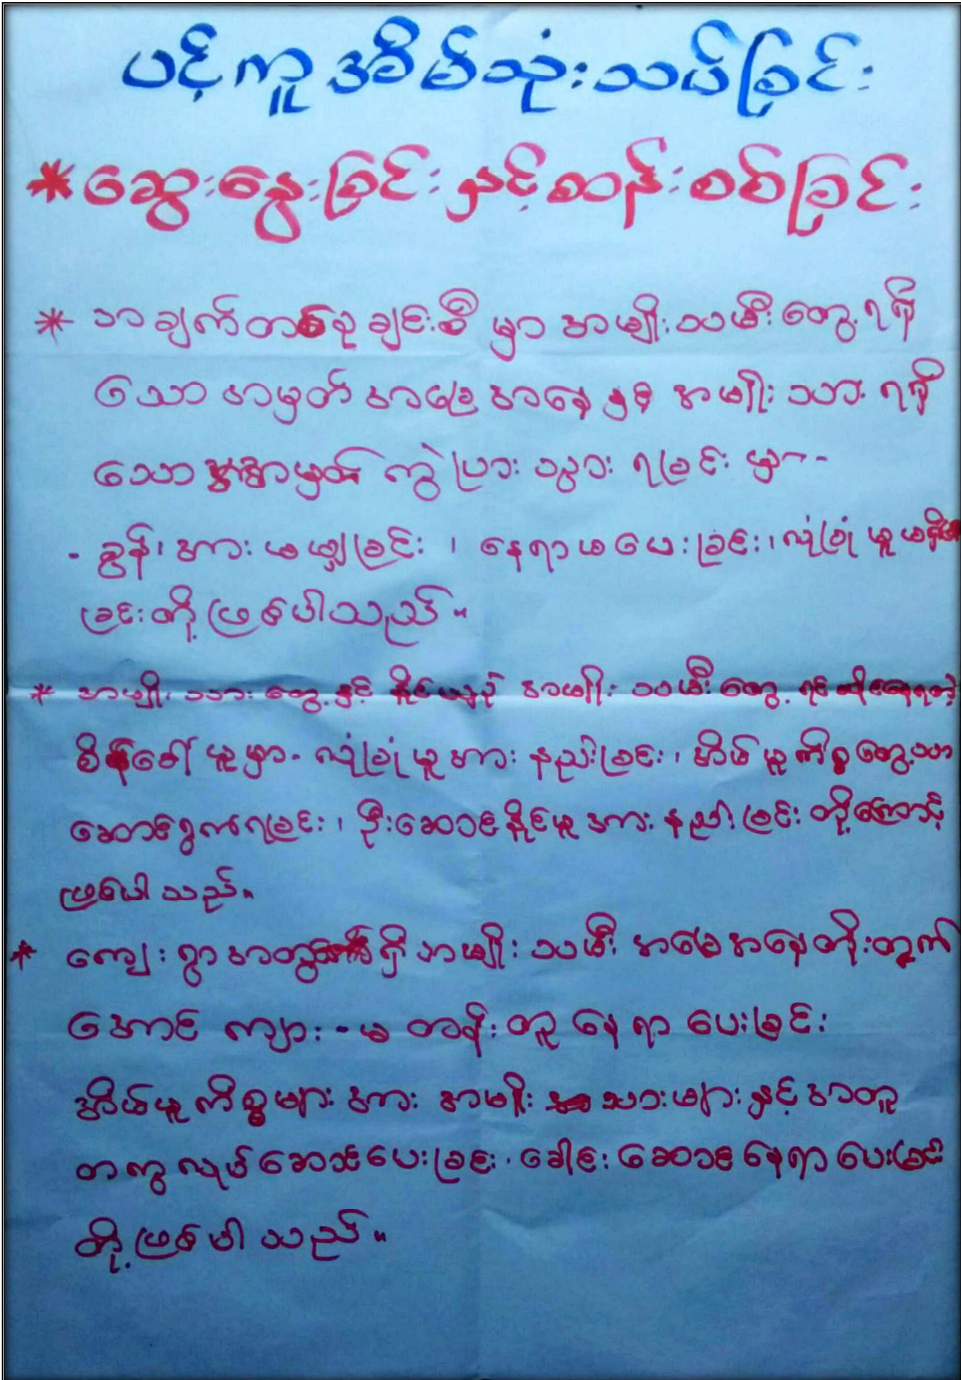 ပင့်ကူအိမ်သုံးသပ်ခြင်း
*ဆွေးနွေးခြင်းနှင့်ဆန်းစစ်ခြင်း
* အချက်တစ်ခုချင်းစီ မှာ အမျိုးသမီးတွေ့ ရရှိ
သော အမှတ် အခြေအနေနှင့် အမျိုးသား ရရှိ
သော အမှတ် ကွဲပြား သွား ရခြင်း မှာ -
- ခွန်၊ အား မမျှခြင်း ၊ နေရာမပေးခြင်း၊ လုံခြုံ မှု မရှိ
ခြင်းတို့ ဖြစ်ပါသည်။
* အမျိုးသားတွေ့နှင့် နှိုင်းယှဉ် အမျိုးသမီးတွေ့ ရင်ဆိုင်နေရတဲ့
စိန်ခေါ်မှုမှာ- လုံခြုံမှုအား နည်းခြင်း၊ အိမ်မှုကိစ္စတွေ့သာ
ဆောင်ရွက်ရခြင်း၊ ဦးဆောင်နိုင်မှုအား နည်းခြင်းတို့ကြောင့်
ဖြစ်ပါသည်။
* ကျေးရွာအတွင်း ရှိ အမျိုးသမီး အခြေအနေတိုးတက်
အောင် ကျား-မ တန်းတူ နေရာ ပေးခြင်း
အိမ်မှုကိစ္စများ အား အမျိုး သားများနှင့် အတူ
တကွ လုပ်ဆောင်ပေးခြင်း ၊ ခေါင်းဆောင်နေရာ ပေးခြင်း
တို့ ဖြစ်ပါသည်။